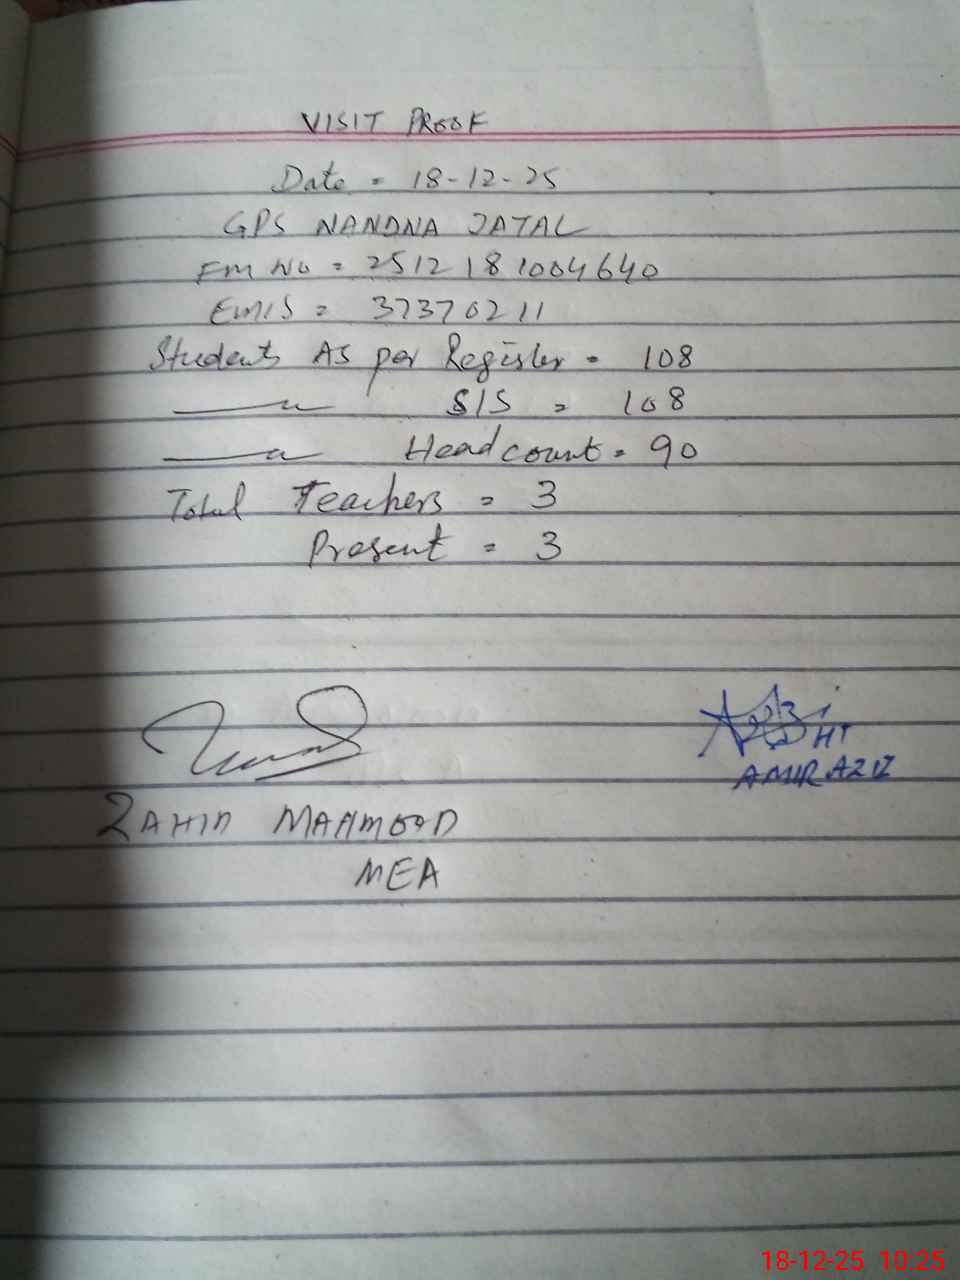 VISIT PROOF
Date = 18-12-25
GPS NANDNA JATAL
FM No = 2512181004640
EMIS = 37370211
Students As per Register = 108
——"—— SIS = 108
——"—— Headcount = 90
Total Teachers = 3
Present = 3
HT
AMIR AZIZ
ZAHID MAHMOOD
MEA
18-12-25 10:25